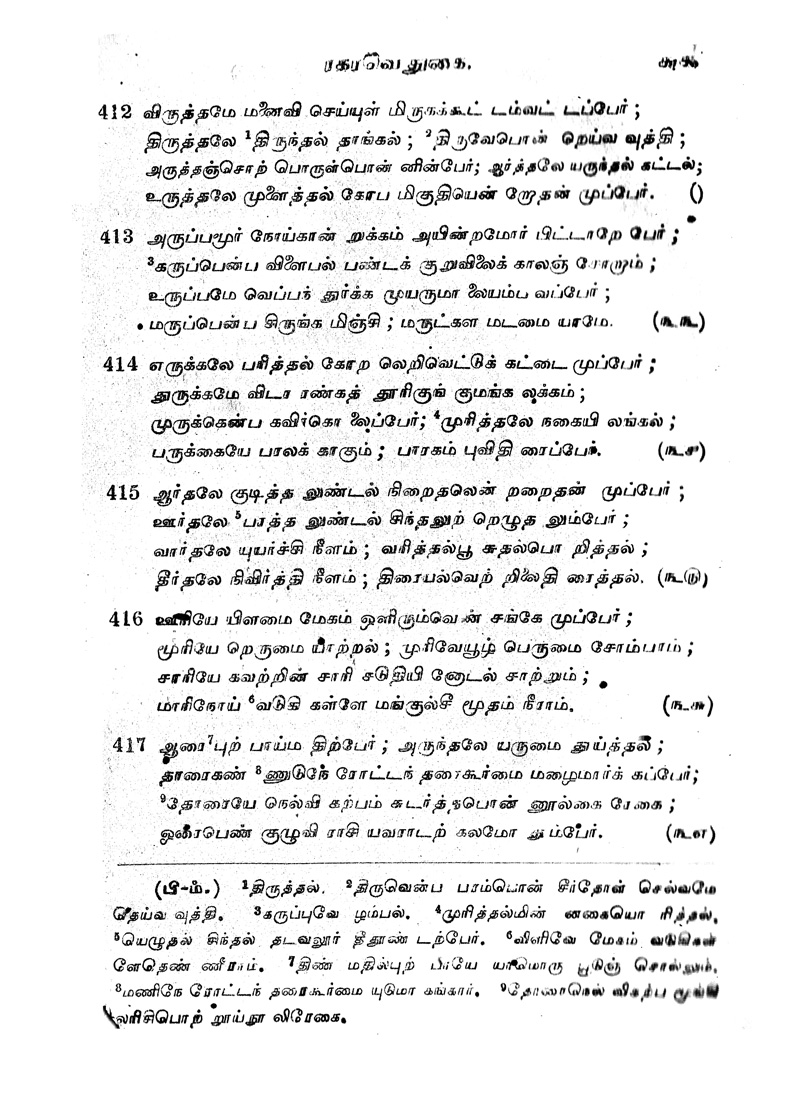 ரகர வெதுகை.
412 விருத்தமே மனைவி செய்யுள் மிருகக்கூட் டம்வட் டப்பேர் ;
திருத்தலே ¹திருந்தல் தாங்கல் ; ²திருவேபொன் றெய்வ வுத்தி ;
அருத்தஞ்சொற் பொருள்பொன் னின்பேர்; ஆர்த்தலே யருந்தல் கட்டல்;
உருத்தலே முளைத்தல் கோப மிகுதியென் றேதன் முப்பேர். ()
413 அருப்பமூர் நோய்கான் றுக்கம் அயின்றமோர் பிட்டாறே பேர் ;
³கருப்பென்ப விளைபல் பண்டக் குறுவிலைக் காலஞ் சோறும் ;
உருப்பமே வெப்பந் துர்க்க முயருமா லையம்ப வப்பேர் ;
மருப்பென்ப சிருங்க மிஞ்சி ; மருட்கள மடமை யாமே. (௩௩)
414 எருக்கலே பரித்தல் கோற லெறிவெட்டுக் கட்டை முப்பேர் ;
துருக்கமே விடா ரண்கத் தூரிகுங் குமங்க லக்கம் ;
முருக்கென்ப கவிர்கொ லைப்பேர்; ⁴முரித்தலே நகையி லங்கல் ;
பருக்கையே பாலக் காகும் ; பாரகம் புவிதி ரைப்பேர். (௩௪)
415 ஆர்தலே குடித்த லுண்டல் நிறைதலென் றறைதன் முப்பேர் ;
ஊர்தலே ⁵பரத்த லுண்டல் சிந்தலுற் றெழுத லும்பேர் ;
வார்தலே யுயர்ச்சி நீளம் ; வரித்தல்பூ சுதல்பொ றித்தல் ;
தீர்தலே நிவிர்த்தி நீளம் ; திரையல்வெற் றிலைதி ரைத்தல். (௩௫)
416 ஊரியே யிளமை மேகம் ஒளிரும்வெண் சங்கே முப்பேர் ;
மூரியே றெருமை யாற்றல் ; முரிவேயூழ் பெருமை சோம்பாம் ;
சாரியே கவற்றின் சாரி சடுதியி னோடல் சாற்றும் ;
மாரிநோய் ⁶வடுகி கள்ளே மங்குல்சீ மூதம் நீராம். (௩௬)
417 ஆரை⁷புற் பாய்ம திற்பேர் ; அருந்தலே யருமை துய்த்தல் ;
தாரைகண் ⁸ணுடுநே ரோட்டந் தரைகூர்மை மழைமார்க் கப்பேர்;
⁹தோரையே நெல்வி கற்பம் சுடர்த்தபொன் னூல்கை ரேகை ;
ஓரைபெண் குழுவி ராசி யவராடற் கலமோ தம்பேர். (௩௭)
(பி-ம்.) ¹திருத்தல். ²திருவென்ப பரம்பொன் சீர்தோள் செல்வமே
தெய்வ வுத்தி. ³கருப்புவே ழம்பல். ⁴முரித்தல்மின் னகையொ ரித்தல்.
⁵யெழுதல் சிந்தல் தடவலூர் தீதூண் டற்பேர். ⁶விளிவே மேகம்
ளேதெண் ணீராம். ⁷திண் மதில்புற் பாயே யாமொரு பூடுஞ் சொல்லும்.
⁸மணிநே ரோட்டந் தரைகூர்மை யுடுமா கங்கார். ⁹தோரைநெல் விகற்ப
லரிசிபொற் றூய்நூ லிரேகை.